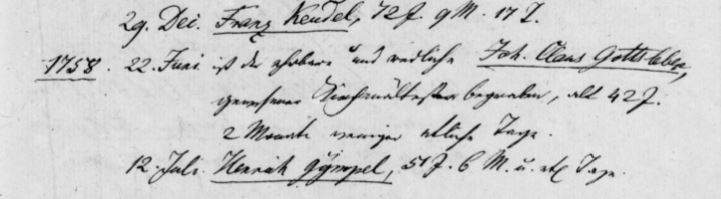 29. Dec. Franz Keudel, 72 J. 9 M. 17 T.
1758. 22. Juni ist der ehrbare und redliche Joh. Claus Gottsleben,
gewesener Kirchenältester begraben, alt 42 J.
2 Monate weniger etliche Tage.
12. Juli. Henrich Gÿmpel, 51 J. 6 M. u. etl. Tage.